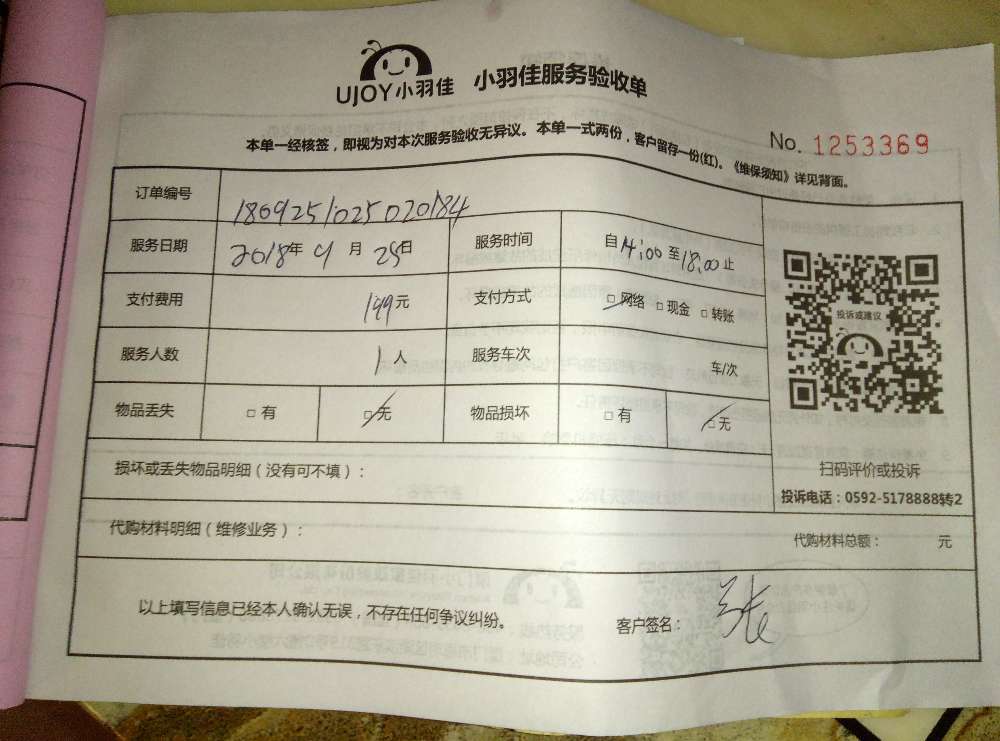 UJOY小羽佳 小羽佳服务验收单
本单一经核签，即视为对本次服务验收无异议。本单一式两份，客户留存一份(红)。《维保须知》详见背面。
No. 1253369
订单编号 1809251025020184
服务日期 2018年9月25日 服务时间 自14:00至18:00止
支付费用 199元 支付方式 □网络 □现金 □转账
服务人数 1人 服务车次 车/次
物品丢失 □有 □无 物品损坏 □有 □无
投诉或建议
扫码评价或投诉
投诉电话：0592-5178888转2
损坏或丢失物品明细（没有可不填）：
代购材料明细（维修业务）： 代购材料总额： 元
以上填写信息已经本人确认无误，不存在任何争议纠纷。 客户签名：